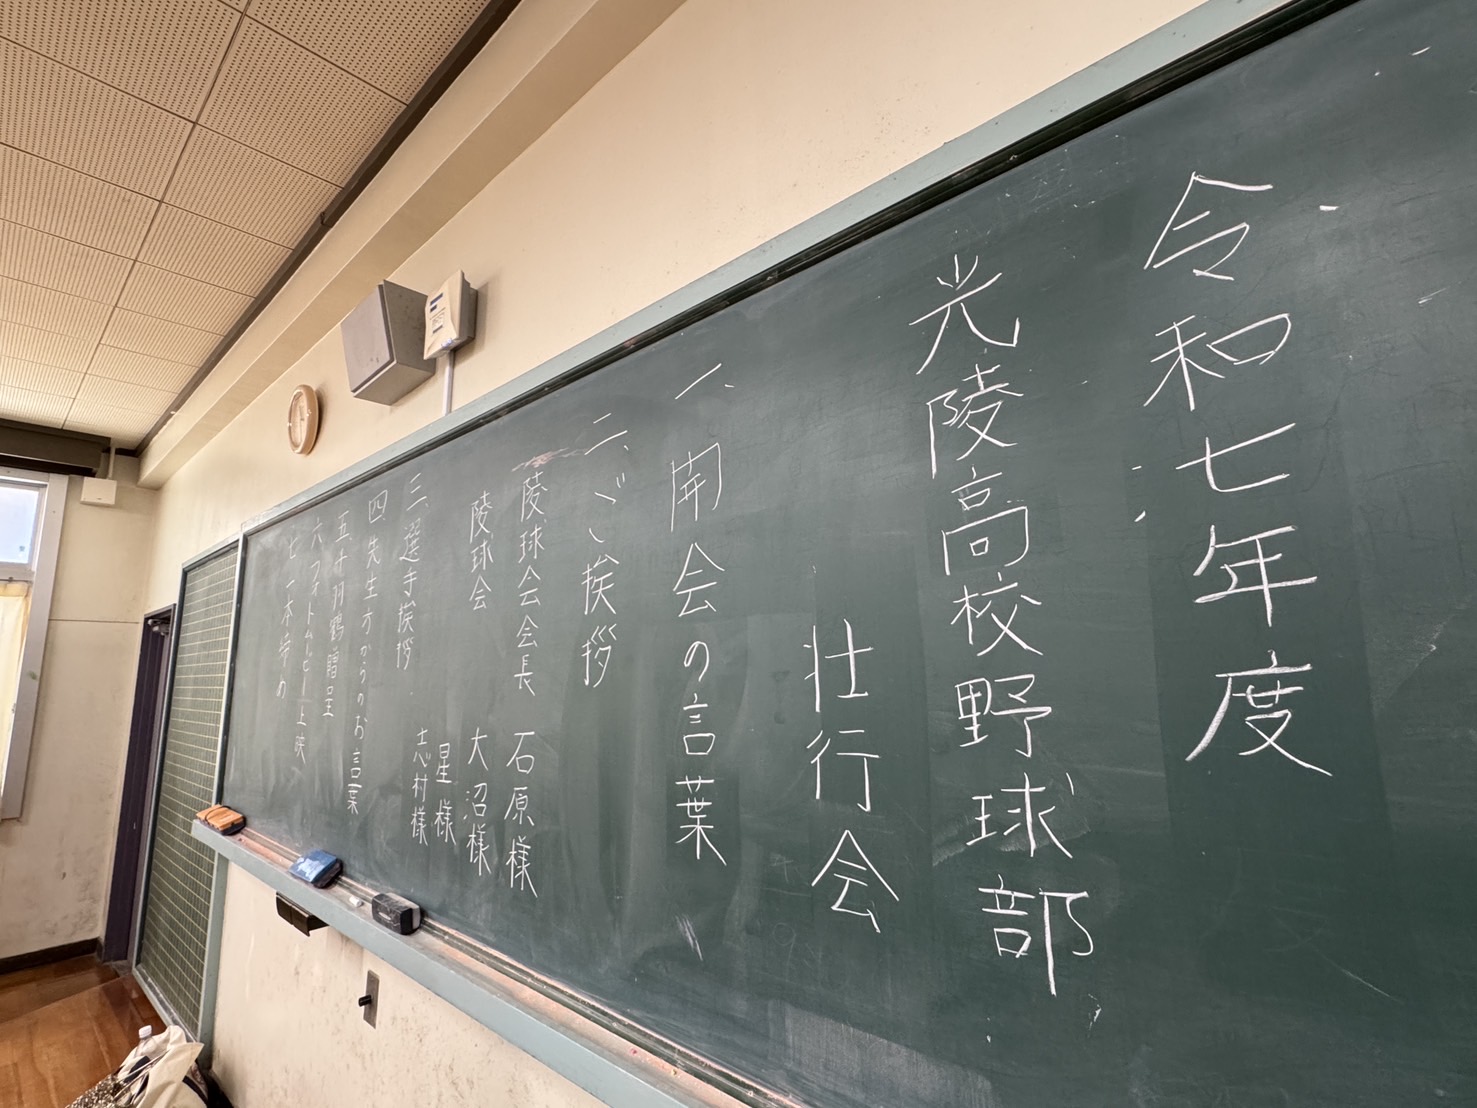 令和七年度
光陵高校野球部
壮行会
一、開会の言葉
二、ご挨拶
陵球会会長 石原様
陵球会 大沼様
星様
志村様
三、選手挨拶
四 先生方からのお言葉
五 千羽鶴贈呈
六 フォトムービー上映
七 一本締め